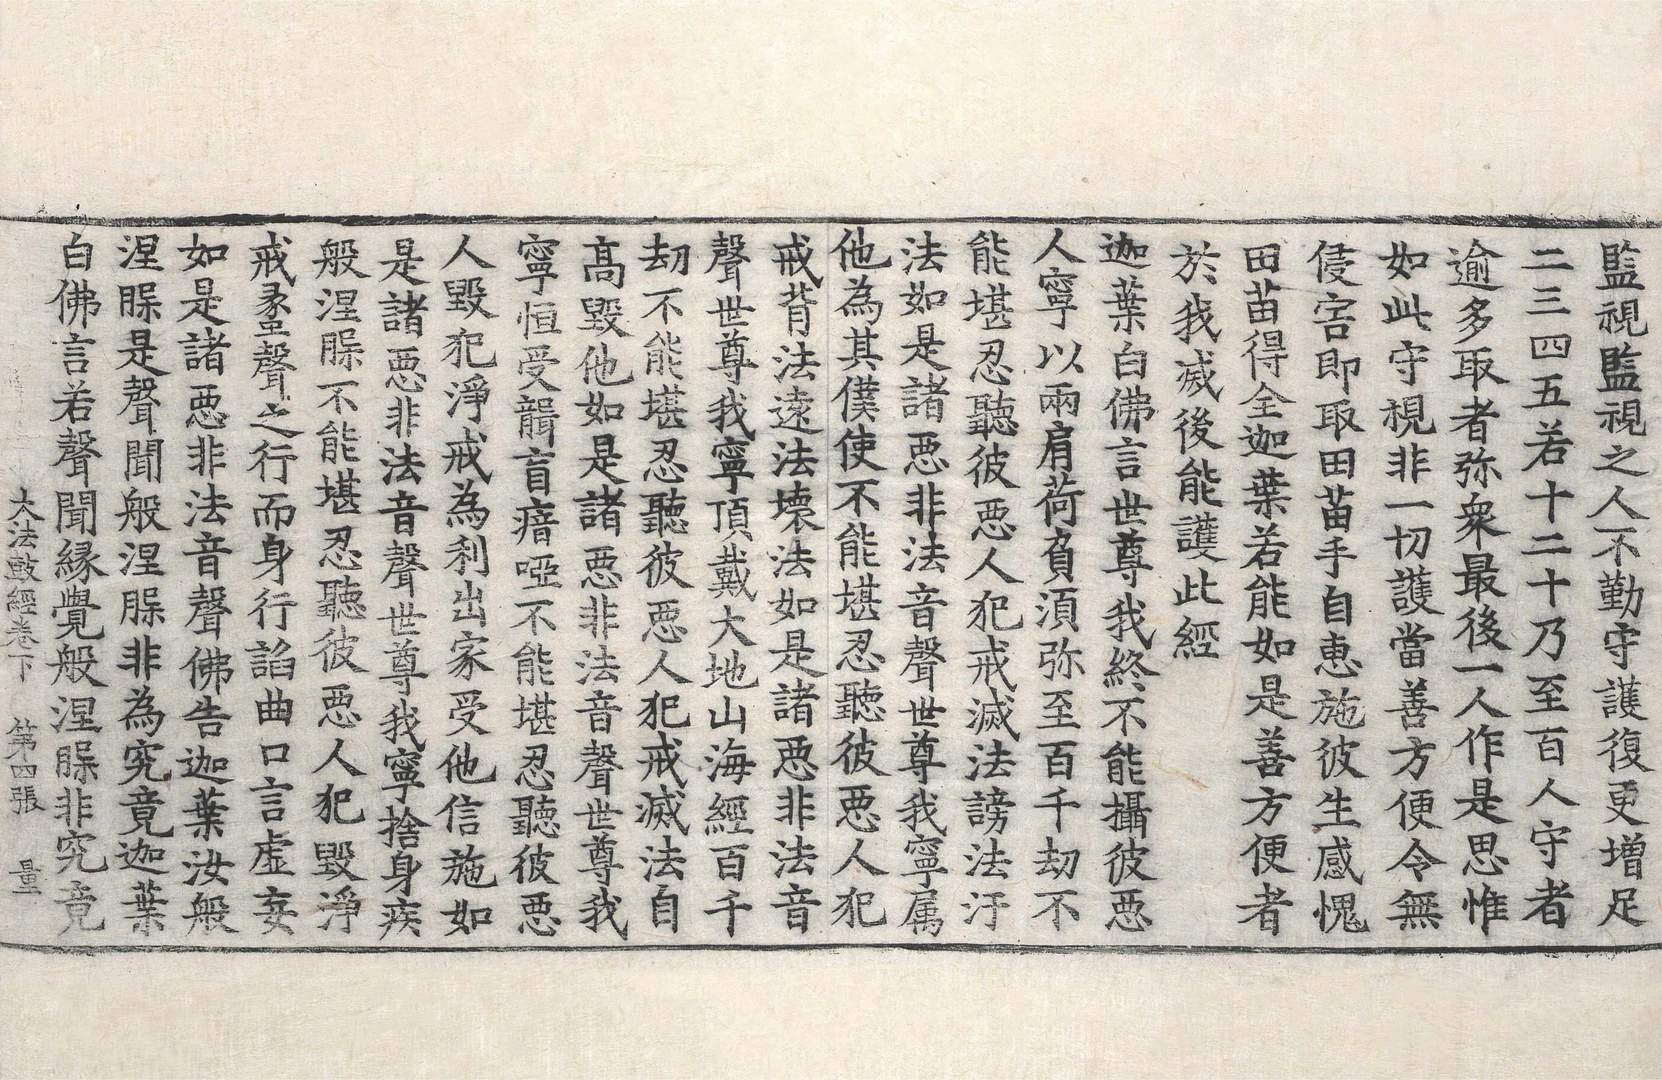 監視監視之人不勤守護復更增足
二三四五若十二十乃至百人守者
逾多取者弥衆最後一人作是思惟
如此守視非一切護當善方便令無
侵害即取田苗手自惠施彼生感愧
田苗得全迦葉若能如是善方便者
於我滅後能護此經
迦葉白佛言世尊我終不能攝彼悪
人寧以兩肩荷負湏弥至百千劫不
能堪忍聽彼悪人犯戒滅法謗法汙
法如是諸悪非法音聲世尊我寧属
他為其僕使不能堪忍聽彼悪人犯
戒背法遠法壞法如是諸悪非法音
聲世尊我寧頂戴大地山海經百千
劫不能堪忍聽彼悪人犯戒滅法自
高毀他如是諸悪非法音聲世尊我
寧恒受聾盲瘖啞不能堪忍聽彼悪
人毀犯淨戒為利出家受他信施如
是諸悪非法音聲世尊我寧捨身疾
般涅槃不能堪忍聽彼悪人犯毀淨
戒蠡聲之行而身行諂曲口言虛妄
如是諸悪非法音聲佛告迦葉汝般
涅槃是聲聞般涅槃非為究竟迦葉
白佛言若聲聞縁覺般涅槃非究竟
大法鼓經卷下 第四張 量